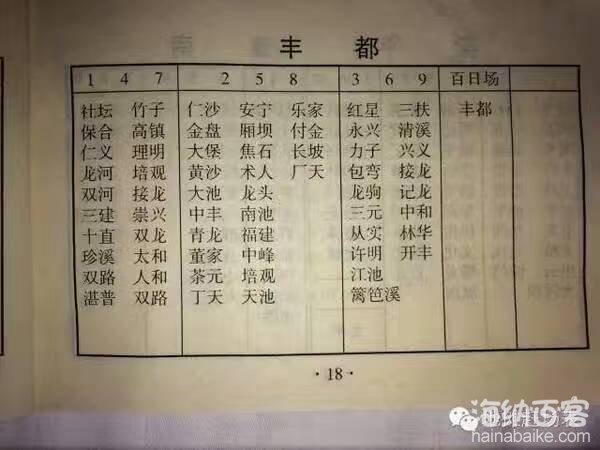 丰 都
1 4 7 2 5 8 3 6 9 百日场
社坛 竹子 仁沙 安宁 乐家 红星 三扶 丰都
保合 高镇 金盘 厢坝 付金 永兴 清溪
仁义 理明 大堡 焦石 长坡 力子 兴义
龙河 培观 黄沙 术人 厂天 包弯 接龙
双河 接龙 大池 龙头 龙驹 记龙
三建 崇兴 中丰 南池 三元 中和
十直 双龙 青龙 福建 从实 林华
珍溪 太和 董家 中峰 许明 开丰
双路 人和 茶元 培观 江池
湛普 双路 丁天 天池 篱笆溪
·18·
海纳百客
hainabaike.com